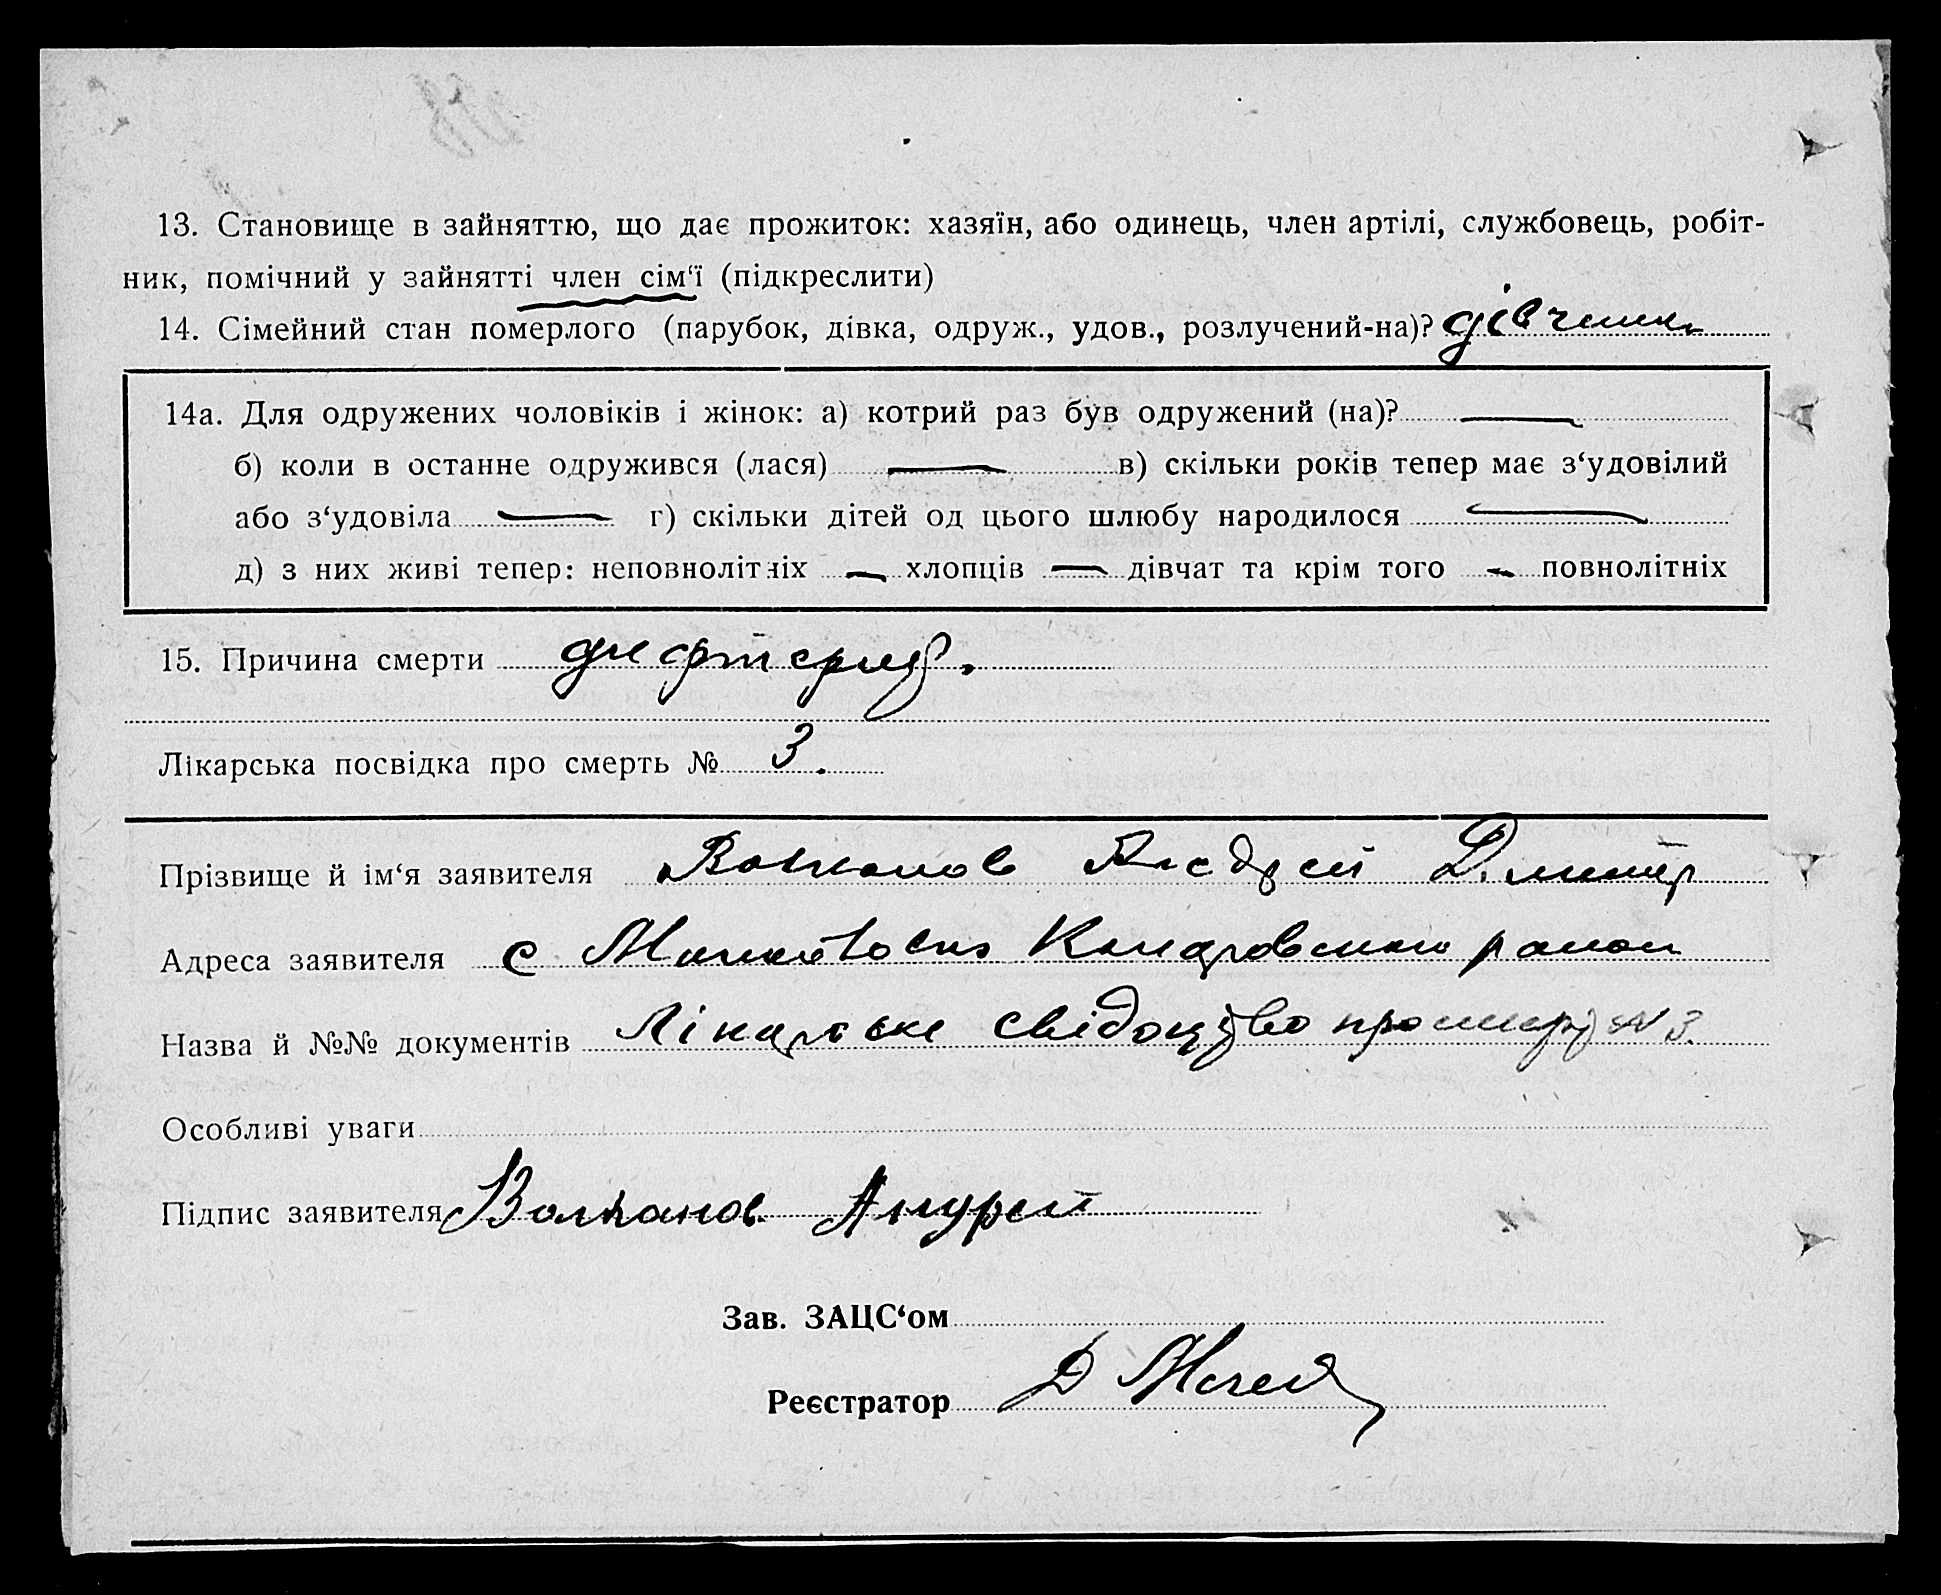 13. Становище в зайняттю, що дає прожиток: хазяїн, або одинець, член артілі, службовець, робіт-
ник, помічний у зайнятті член сім‘ї (підкреслити)
14. Сімейний стан померлого (парубок, дівка, одруж., удов., розлучений-на)?
14а. Для одружених чоловіків і жінок: а) котрий раз був одружений (на)? —
б) коли в останнє одружився (лася) — в) скільки років тепер має з‘удовілий
або з‘удовіла — г) скільки дітей од цього шлюбу народилося —
д) з них живі тепер: неповнолітніх — хлопців — дівчат та крім того — повнолітніх
15. Причина смерти дифтерия.
Лікарська посвідка про смерть № 3.
Прізвище й ім‘я заявителя
Адреса заявителя с
Назва й №№ документів Лікарське свідоцтво про смерть № 3.
Особливі уваги
Підпис заявителя Волканов Андрей
Зав. ЗАЦС‘ом
Реєстратор Д